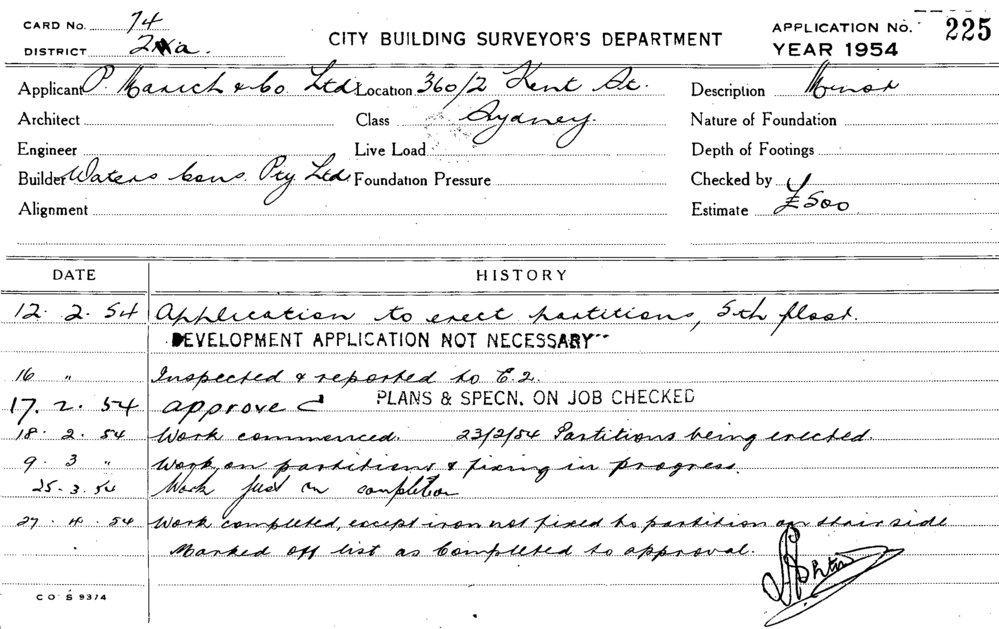 CARD No. 74
DISTRICT 2
CITY BUILDING SURVEYOR'S DEPARTMENT
APPLICATION No. 225
YEAR 1954
Applicant P. Marich & Co. Ltd. Location 360/2 Kent St. Description Minor
Architect Class Sydney. Nature of Foundation
Engineer Live Load Depth of Footings
Builder Waters Cons. Pty Ltd. Foundation Pressure Checked by
Alignment Estimate £500
DATE HISTORY
12. 2. 54 Application to erect partitions, 5th floor.
DEVELOPMENT APPLICATION NOT NECESSARY
16 " Inspected & reported to E.2.
17. 2. 54 approved PLANS & SPECN. ON JOB CHECKED
18. 2. 54 Work commenced. 23/2/54 Partitions being erected.
9. 3 " Work on partitions & fixing in progress.
25. 3. 54 Work just on completion
27. 4. 54 Work completed, except iron not fixed to partition on stair side
Marked off list as Completed to approval.
CO S 93/4